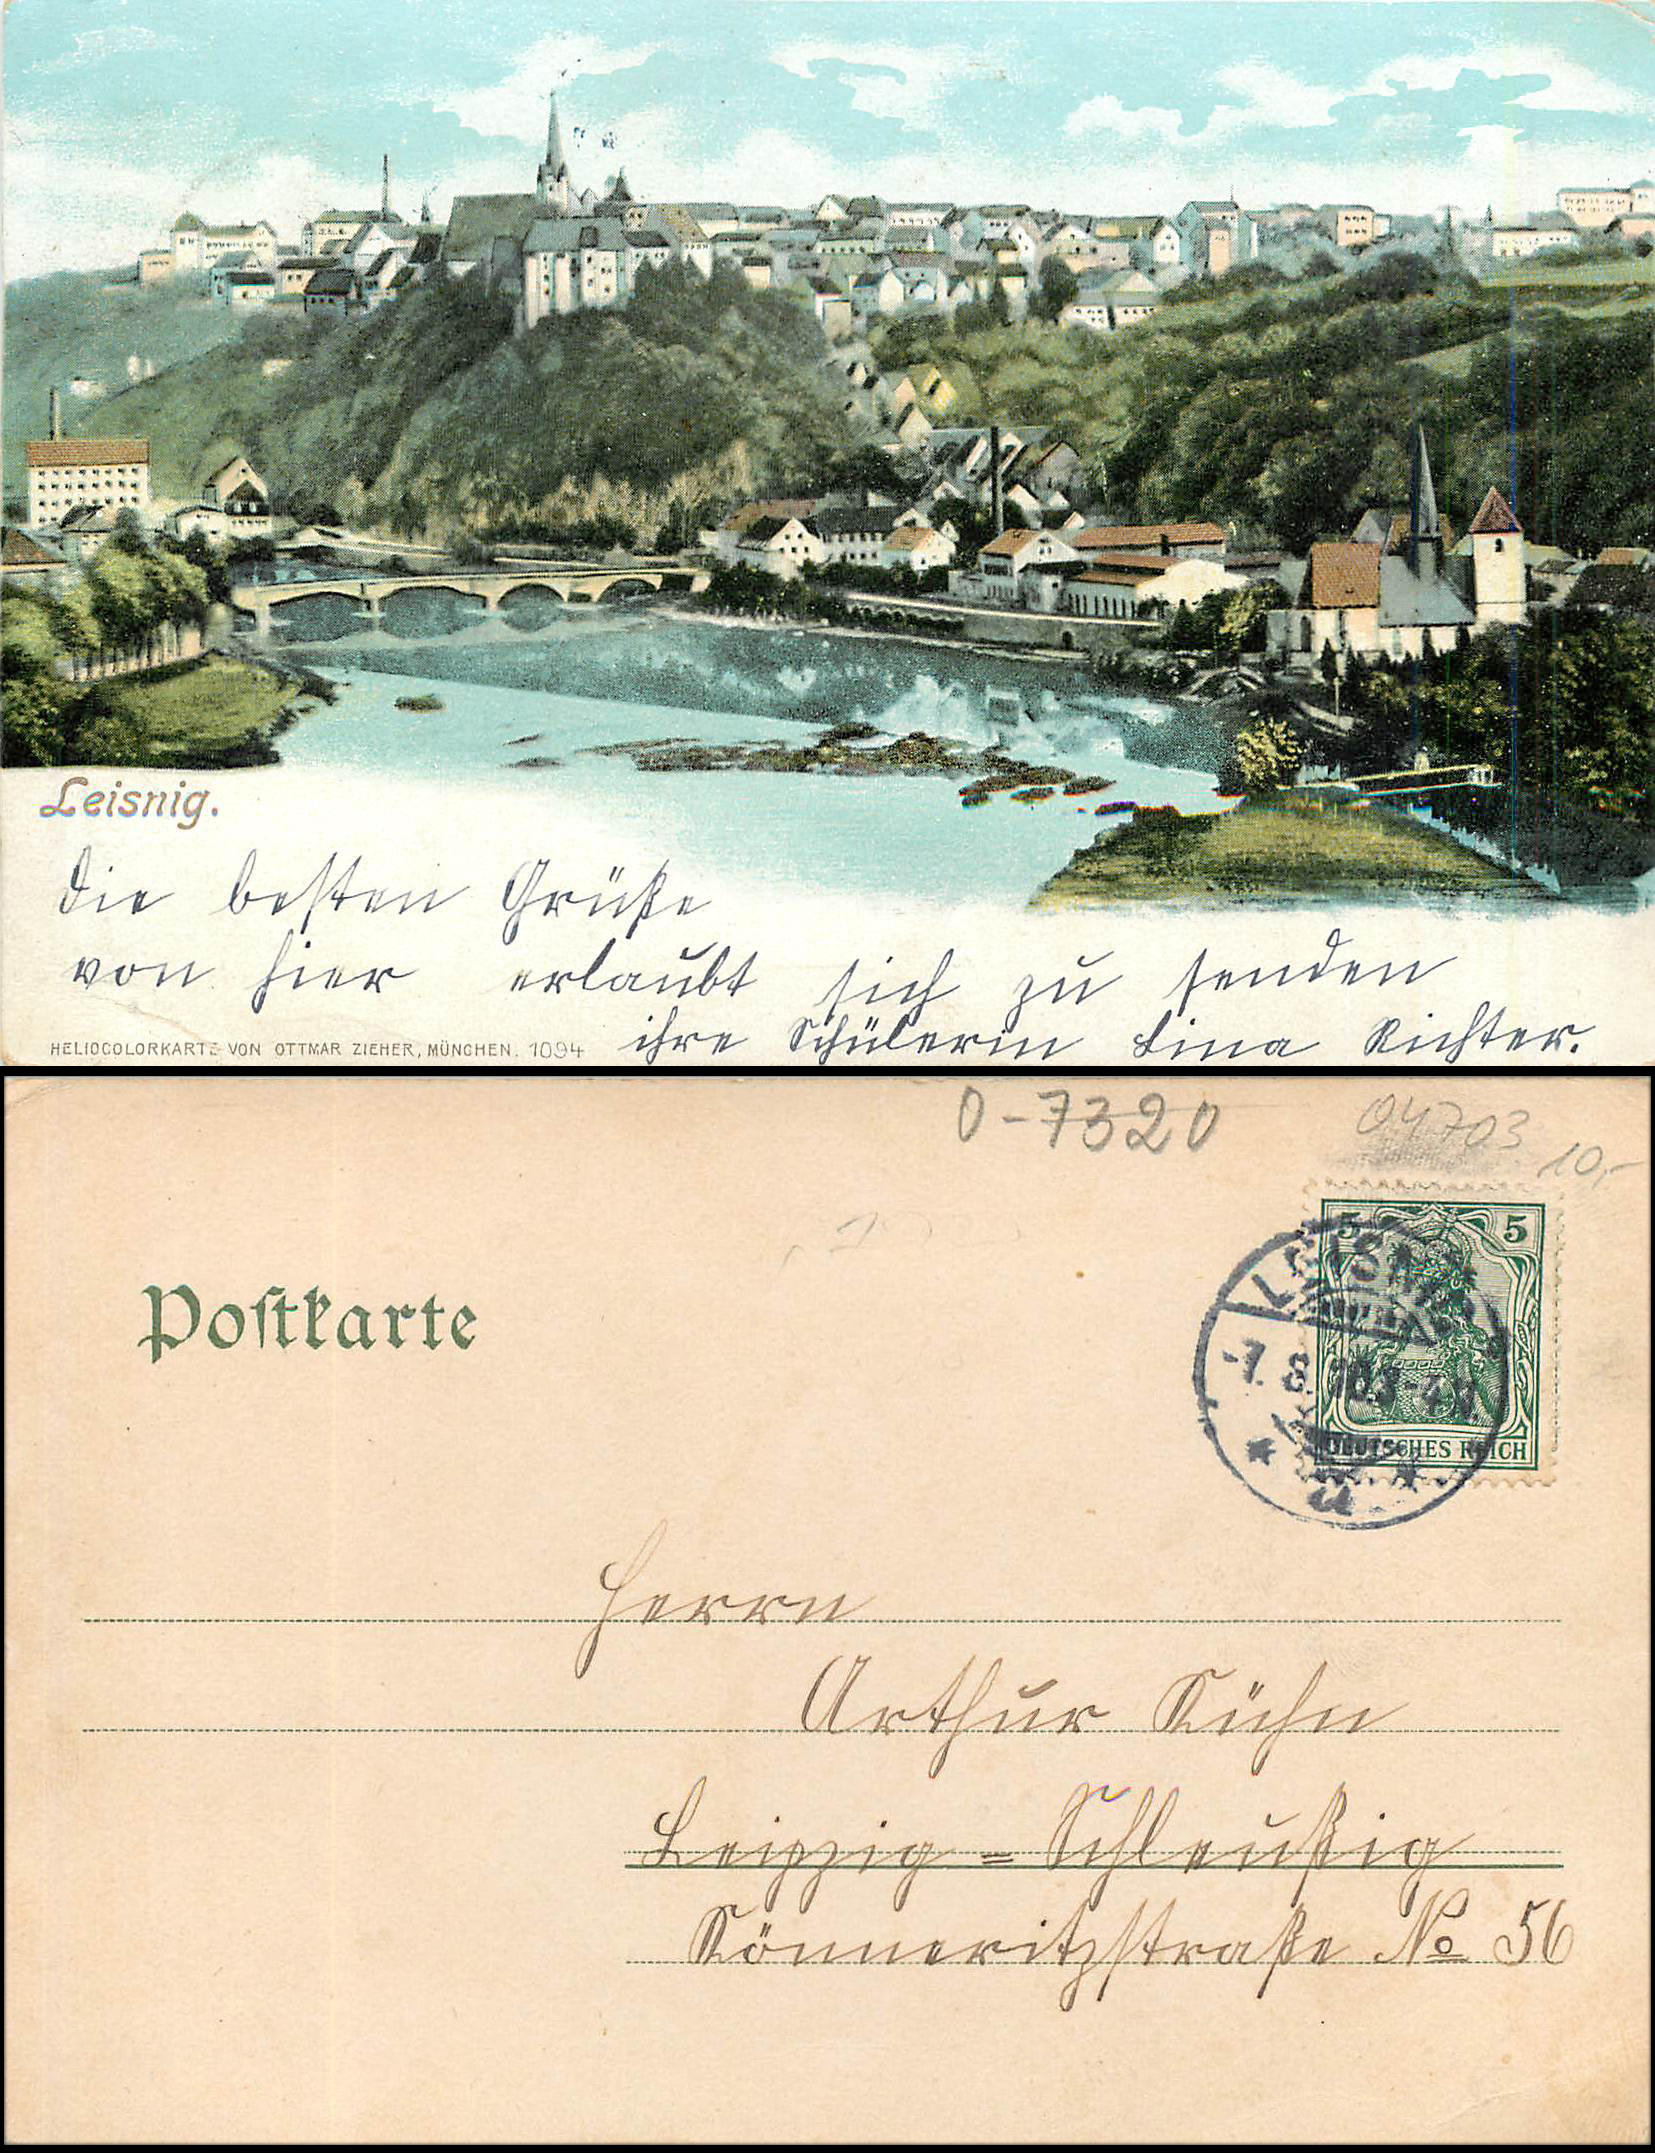 Leisnig.
Die besten Grüße
von hier erlaubt sich zu senden
ihre Schülerin Lina Richter.
HELIOCOLORKARTE VON OTTMAR ZIEHER, MÜNCHEN. 1094
O-7320
04703
10,-
Postkarte
5 5
LEISNIG
DEUTSCHES REICH
Herrn
Arthur Kühn
Leipzig = Schleußig
Könneritzstraße No 56